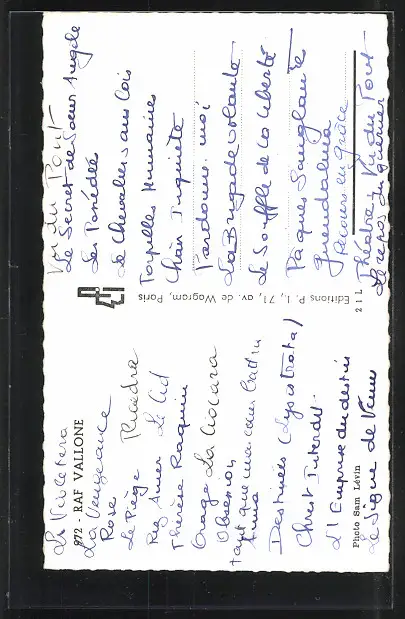 La Violetera
972 - RAF VALLONE
La Vengeance
Rose
Le Piège Phaedra
Riz Amer Le Cid
Thérèse Raquin
Orage La Ciociara
Obsession
tant que mon cœur battra
Anna
Destinées (Lysistrata)
Christ Interdit
L'Emprise du destin
Photo Sam Lévin
Le Signe de Vénus
Editions P. I., 71, av. de Wagram, Paris
21L
Vu du Pont
Le Secret de Sœur Angèle
Les Possédés
Le Chevalier sans Lois
Torpilles Humaines
Chair Inquiète
Pardonne-moi
La Brigade volante
Le Souffle de la liberté
Pâques Sanglantes
Guendalina
Recours en grâce
Théâtre : Vu du Pont
Le repos du guerrier